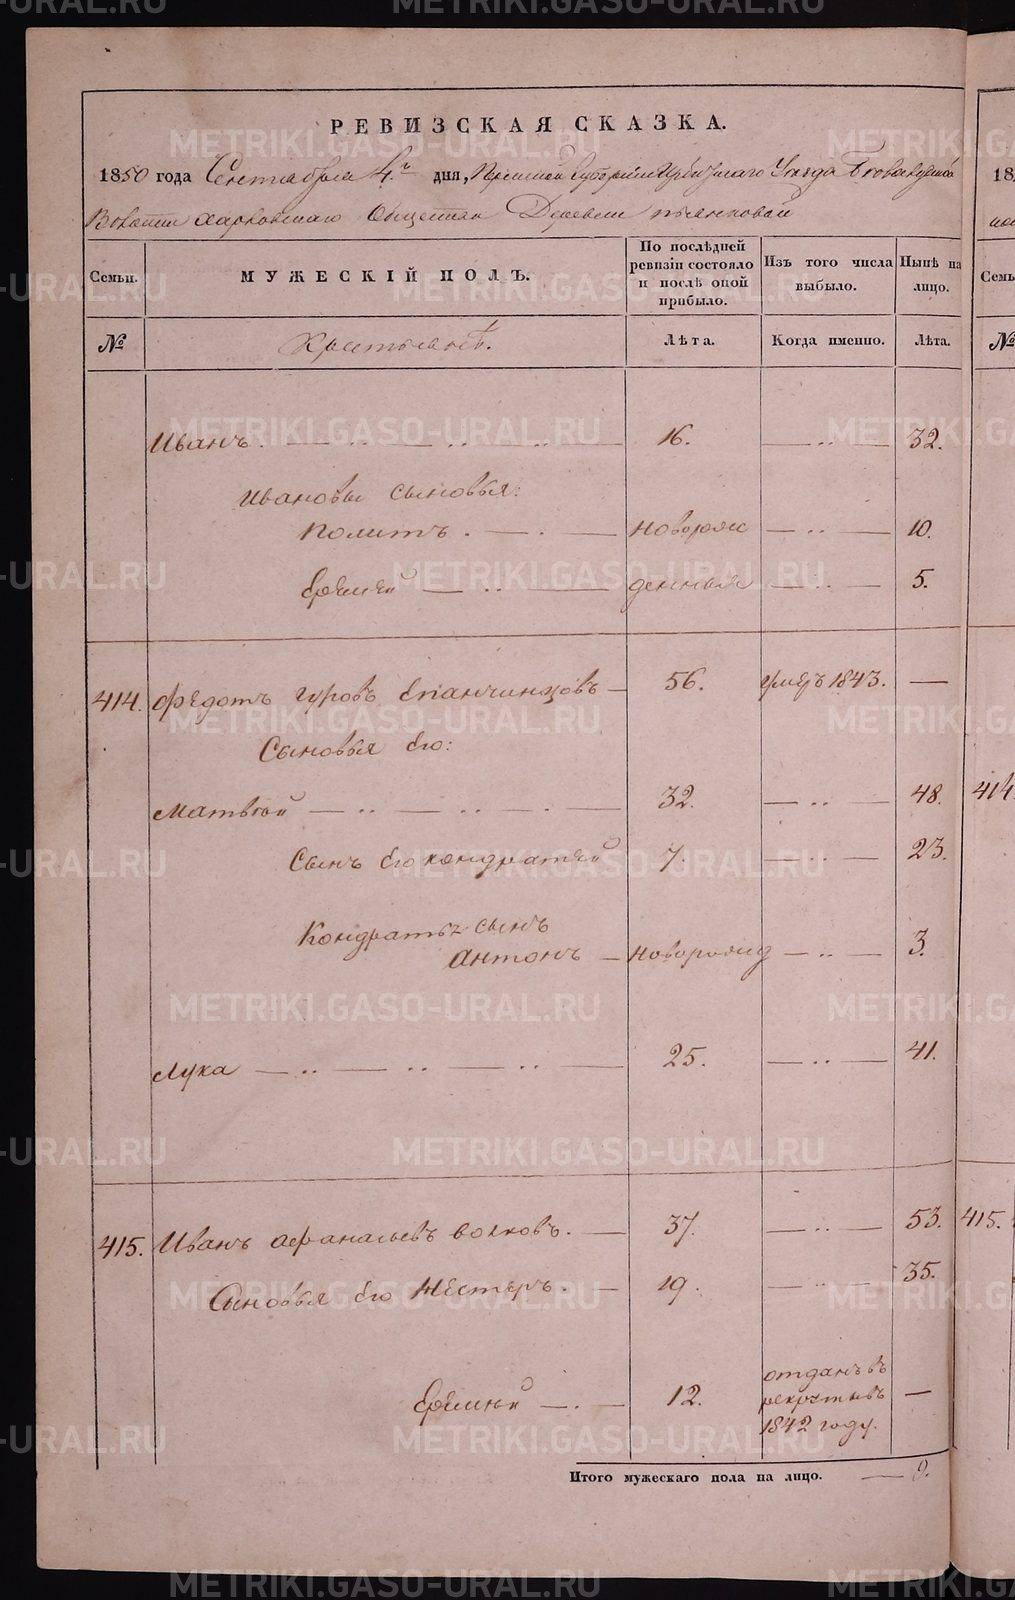 РЕВИЗСКАЯ СКАЗКА.
1850 года Сентября 4го дня, Пермской Губернии Ирбитскаго Уезда
Волости Харловскаго Общества Деревни
Семьи. МУЖЕСКІЙ ПОЛЪ. По послѣдней ревизіи состояло и послѣ оной прибыло. Изъ того числа выбыло. Нынѣ на лицо.
№ Крестьянъ. Лѣта. Когда именно. Лѣта.
Иванъ. 16. 32.
Ивановы сыновья:
Политъ. новорож 10.
Еремѣй денныя 5.
414. Федотъ Гуровъ Епанчинцовъ 56. умеръ 1843.
Сыновья его:
Матвѣй 32. 48.
Сынъ его Кондратей 7. 23.
Кондратья сынъ
Антонъ новорожд 3.
Лука 25. 41.
415. Иванъ Афанасьевъ Волковъ. 37. 53.
Сыновья его Нестеръ. 19. 35.
Еремѣй 12. отданъ въ рекруты въ 1842 году.
Итого мужескаго пола на лицо. 9.
18
Семь
№
414
415.
METRIKI.GASO-URAL.RU